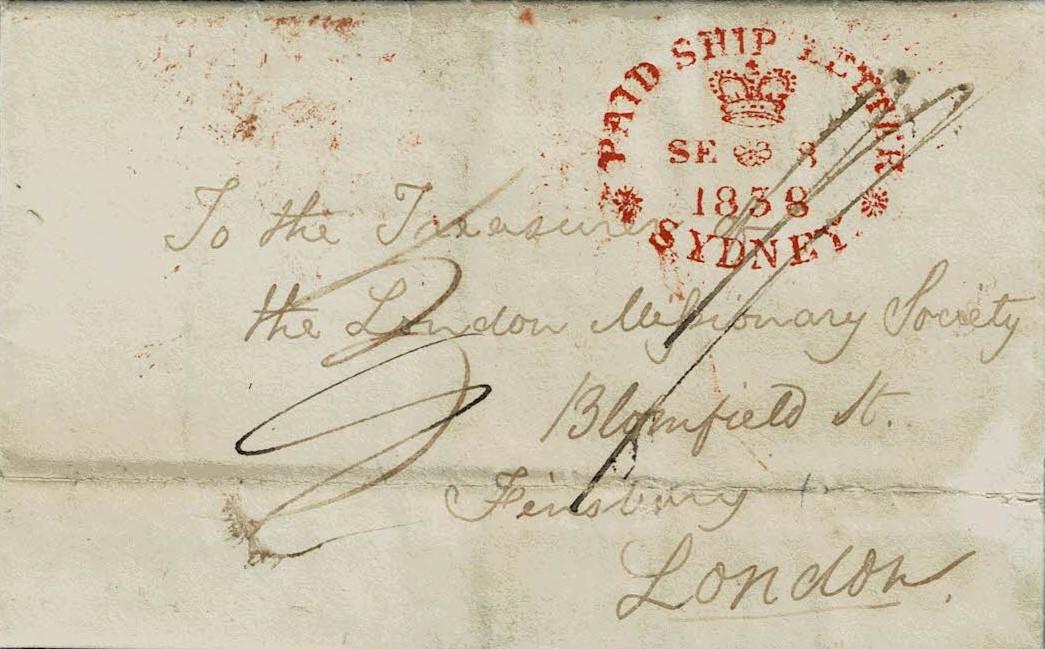 PAID SHIP LETTER
SE 8
1838
SYDNEY
To the Treasurer of
the London Missionary Society
Blomfield St.
Finsbury
London.